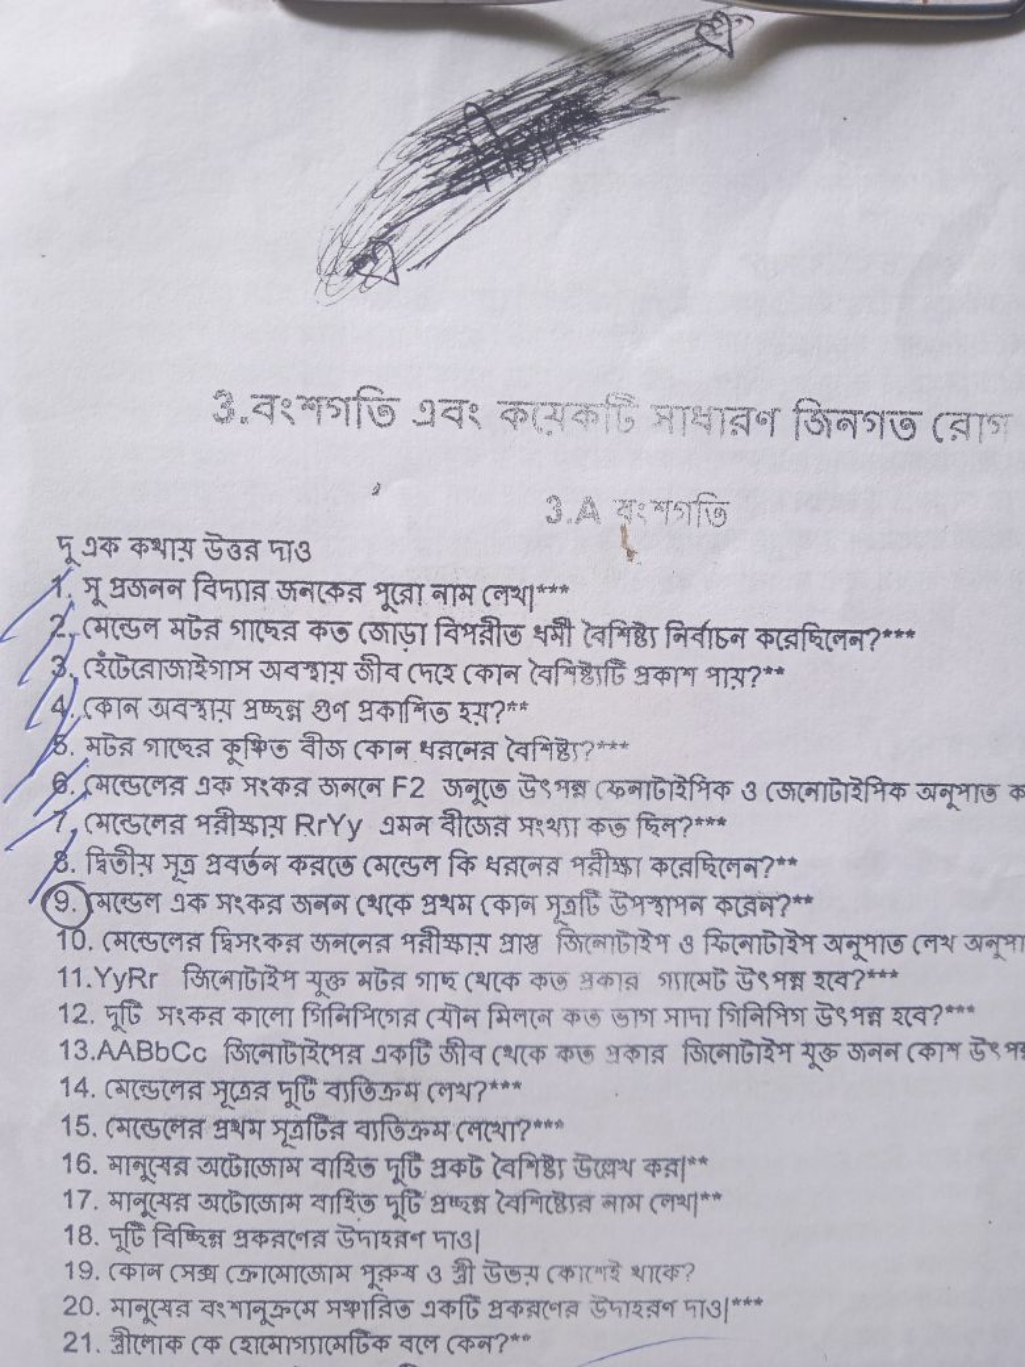 3.বংশগতি এবং কয়েকটি সাধারণ জিনগত রোগ
3.A বংশগতি
দু এক কথায় উত্তর দাও
1. সু প্রজনন বিদ্যার জনকের পুরো নাম লেখ|***
2. মেন্ডেল মটর গাছের কত জোড়া বিপরীত ধর্মী বৈশিষ্ট্য নির্বাচন করেছিলেন?***
3. হেঁটেরোজাইগাস অবস্থায় জীব দেহে কোন বৈশিষ্ট্যটি প্রকাশ পায়?**
4. কোন অবস্থায় প্রচ্ছন্ন গুণ প্রকাশিত হয়?**
5. মটর গাছের কুঞ্চিত বীজ কোন ধরনের বৈশিষ্ট্য?***
6. মেন্ডেলের এক সংকর জননে F2 জনুতে উৎপন্ন ফেনাটাইপিক ও জেনোটাইপিক অনুপাত ক
7. মেন্ডেলের পরীক্ষায় RrYy এমন বীজের সংখ্যা কত ছিল?***
8. দ্বিতীয় সূত্র প্রবর্তন করতে মেন্ডেল কি ধরনের পরীক্ষা করেছিলেন?**
9. মেন্ডেল এক সংকর জনন থেকে প্রথম কোন সূত্রটি উপস্থাপন করেন?**
10. মেন্ডেলের দ্বিসংকর জননের পরীক্ষায় প্রাপ্ত জিনোটাইপ ও ফিনোটাইপ অনুপাত লেখ অনুপা
11.YyRr জিনোটাইপ যুক্ত মটর গাছ থেকে কত প্রকার গ্যামেট উৎপন্ন হবে?***
12. দুটি সংকর কালো গিনিপিগের যৌন মিলনে কত ভাগ সাদা গিনিপিগ উৎপন্ন হবে?***
13.AABbCc জিনোটাইপের একটি জীব থেকে কত প্রকার জিনোটাইপ যুক্ত জনন কোশ উৎপন্ন
14. মেন্ডেলের সূত্রের দুটি ব্যতিক্রম লেখ?***
15. মেন্ডেলের প্রথম সূত্রটির ব্যতিক্রম লেখো?***
16. মানুষের অটোজোম বাহিত দুটি প্রকট বৈশিষ্ট্য উল্লেখ কর|**
17. মানুষের অটোজোম বাহিত দুটি প্রচ্ছন্ন বৈশিষ্ট্যের নাম লেখ|**
18. দুটি বিচ্ছিন্ন প্রকরণের উদাহরণ দাও|
19. কোন সেক্স ক্রোমোজোম পুরুষ ও স্ত্রী উভয় কোশেই থাকে?
20. মানুষের বংশানুক্রমে সঞ্চারিত একটি প্রকরণের উদাহরণ দাও|***
21. স্ত্রীলোক কে হোমোগ্যামেটিক বলে কেন?**